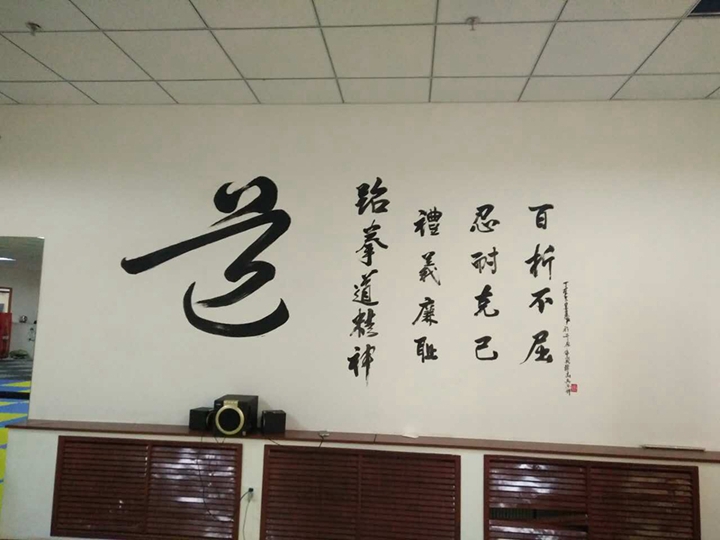 道
跆拳道精神
禮義廉耻
忍耐克己
百折不屈